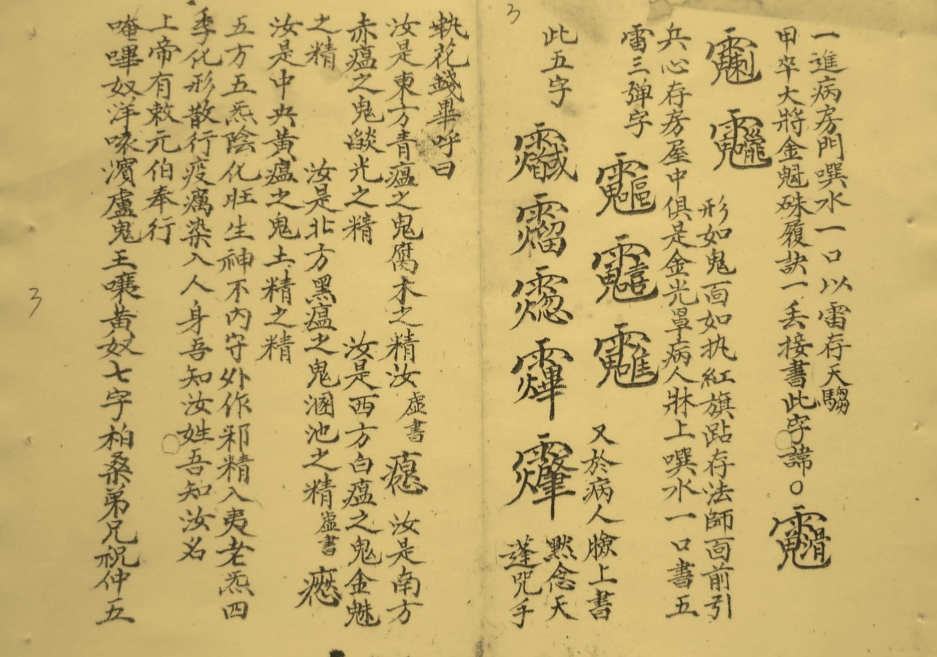 一進病房門噀水一口以雷存天騶
甲卒大將金魁硃履訣一丢接書此字諱○
形如鬼面如执紅旗跕存法師面前引
兵心存房屋中俱是金光罩病人牀上噀水一口書五
雷三弹字
又於病人臉上書
此五字
默念天
蓬咒手
執花錢畢呼曰
汝是東方青瘟之鬼腐木之精汝虛書
汝是南方
赤瘟之鬼燄光之精
汝是西方白瘟之鬼金魅
之精
汝是北方黑瘟之鬼溷池之精虛書
汝是中央黃瘟之鬼土精之精
五方五炁陰化旺生神不內守外作邪精入夷老炁四
季化形散行疫癘染入人身吾知汝姓吾知汝名
上帝有敕元伯奉行
唵嗶奴洋喙濱盧鬼王嚷黃奴七字柏桑弟兄祝仲五
3
3